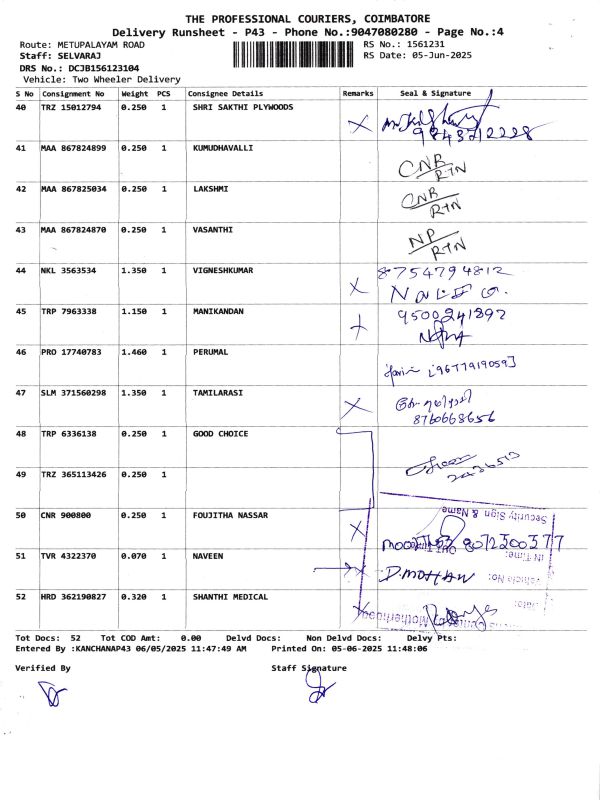 THE PROFESSIONAL COURIERS, COIMBATORE
Delivery Runsheet - P43 - Phone No.:9047080280 - Page No.:4
Route: METUPALAYAM ROAD RS No.: 1561231
Staff: SELVARAJ RS Date: 05-Jun-2025
DRS No.: DCJB156123104
Vehicle: Two Wheeler Delivery
S No Consignment No Weight PCS Consignee Details Remarks Seal & Signature
40 TRZ 15012794 0.250 1 SHRI SAKTHI PLYWOODS
9843712228
41 MAA 867824899 0.250 1 KUMUDHAVALLI
CNR/RTN
42 MAA 867825034 0.250 1 LAKSHMI
CNR/RTN
43 MAA 867824870 0.250 1 VASANTHI
NP/RTN
44 NKL 3563534 1.350 1 VIGNESHKUMAR X 8754794812
45 TRP 7963338 1.150 1 MANIKANDAN 9500241892
46 PRO 17740783 1.460 1 PERUMAL
[9677919059]
47 SLM 371560298 1.350 1 TAMILARASI X
8760668656
48 TRP 6336138 0.250 1 GOOD CHOICE
49 TRZ 365113426 0.250 1
Security Sign & Name
50 CNR 900800 0.250 1 FOUJITHA NASSAR X
8072500577
IN Time:
51 TVR 4322370 0.070 1 NAVEEN
D.MOHAN
52 HRD 362190827 0.320 1 SHANTHI MEDICAL
Motherhood
Tot Docs: 52 Tot COD Amt: 0.00 Delvd Docs: Non Delvd Docs: Delvy Pts:
Entered By :KANCHANAP43 06/05/2025 11:47:49 AM Printed On: 05-06-2025 11:48:06
Verified By Staff Signature